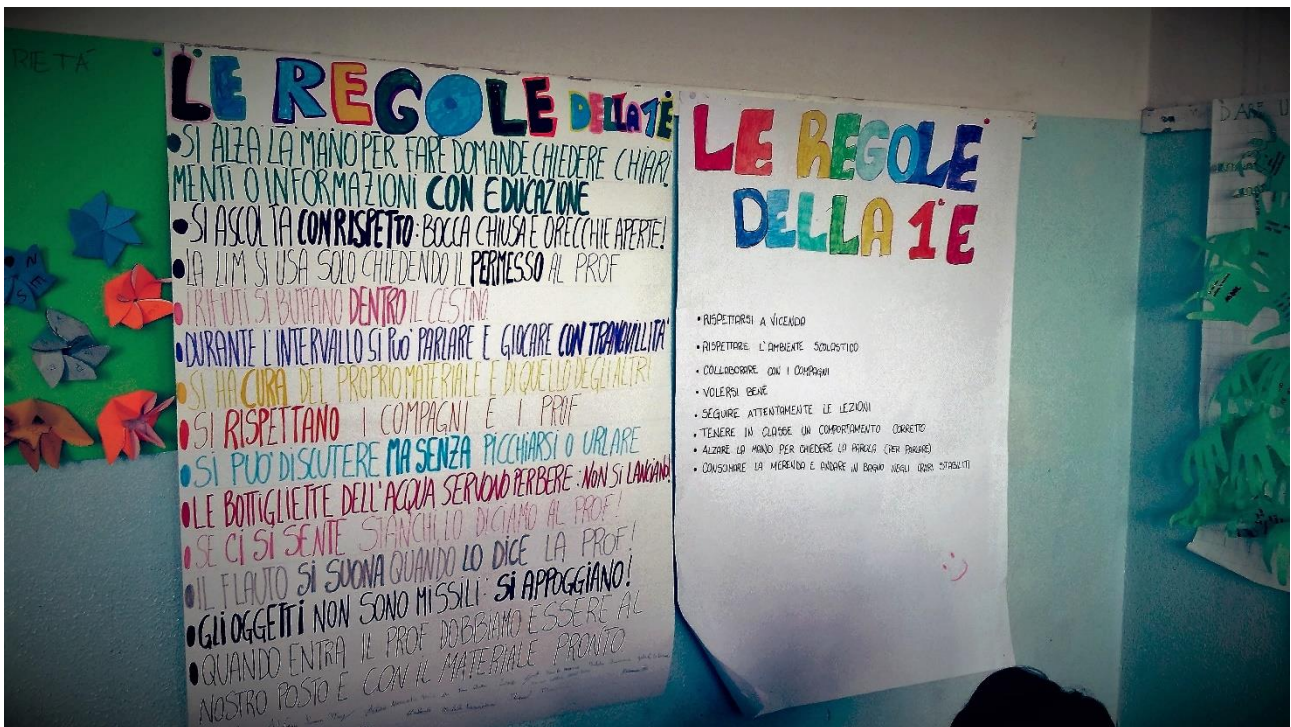 RIETÀ
LE REGOLE DELLA 1E
•SI ALZA LA MANO PER FARE DOMANDE CHIEDERE CHIARI
MENTI O INFORMAZIONI CON EDUCAZIONE
•SI ASCOLTA CON RISPETTO: BOCCA CHIUSA E ORECCHIE APERTE!
•LA LIM SI USA SOLO CHIEDENDO IL PERMESSO AL PROF
•I RIFIUTI SI BUTTANO DENTRO IL CESTINO
•DURANTE L'INTERVALLO SI PUÒ PARLARE E GIOCARE CON TRANQUILLITÀ
•SI HA CURA DEL PROPRIO MATERIALE E DI QUELLO DEGLI ALTRI
•SI RISPETTANO I COMPAGNI E I PROF
•SI PUÒ DISCUTERE MA SENZA PICCHIARSI O URLARE
•LE BOTTIGLIETTE DELL'ACQUA SERVONO PER BERE: NON SI LANCIANO!
•SE CI SI SENTE STANCHI LO DICIAMO AL PROF!
•IL FLAUTO SI SUONA QUANDO LO DICE LA PROF!
•GLI OGGETTI NON SONO MISSILI: SI APPOGGIANO!
•QUANDO ENTRA IL PROF DOBBIAMO ESSERE AL
NOSTRO POSTO E CON IL MATERIALE PRONTO
LE REGOLE
DELLA 1°E
• RISPETTARSI A VICENDA
• RISPETTARE L'AMBIENTE SCOLASTICO
• COLLABORARE CON I COMPAGNI
• VOLERSI BENE
• SEGUIRE ATTENTAMENTE LE LEZIONI
• TENERE IN CLASSE UN COMPORTAMENTO CORRETTO
• ALZARE LA MANO PER CHIEDERE LA PAROLA (PER PARLARE)
• CONSUMARE LA MERENDA E ANDARE IN BAGNO NEGLI ORARI STABILITI
:)
DARE U